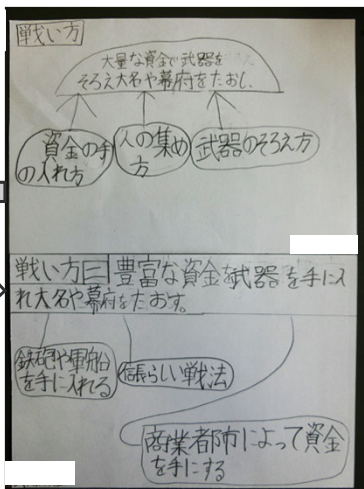 戦い方
大量な資金で武器を
そろえ大名や幕府をたおし、
資金の手
の入れ方
人の集め
方
武器のそろえ方
戦い方＝豊富な資金を武器を手に入
れ大名や幕府をたおす。
鉄砲や軍船
を手に入れる
信長らしい戦法
商業都市によって資金
を手にする